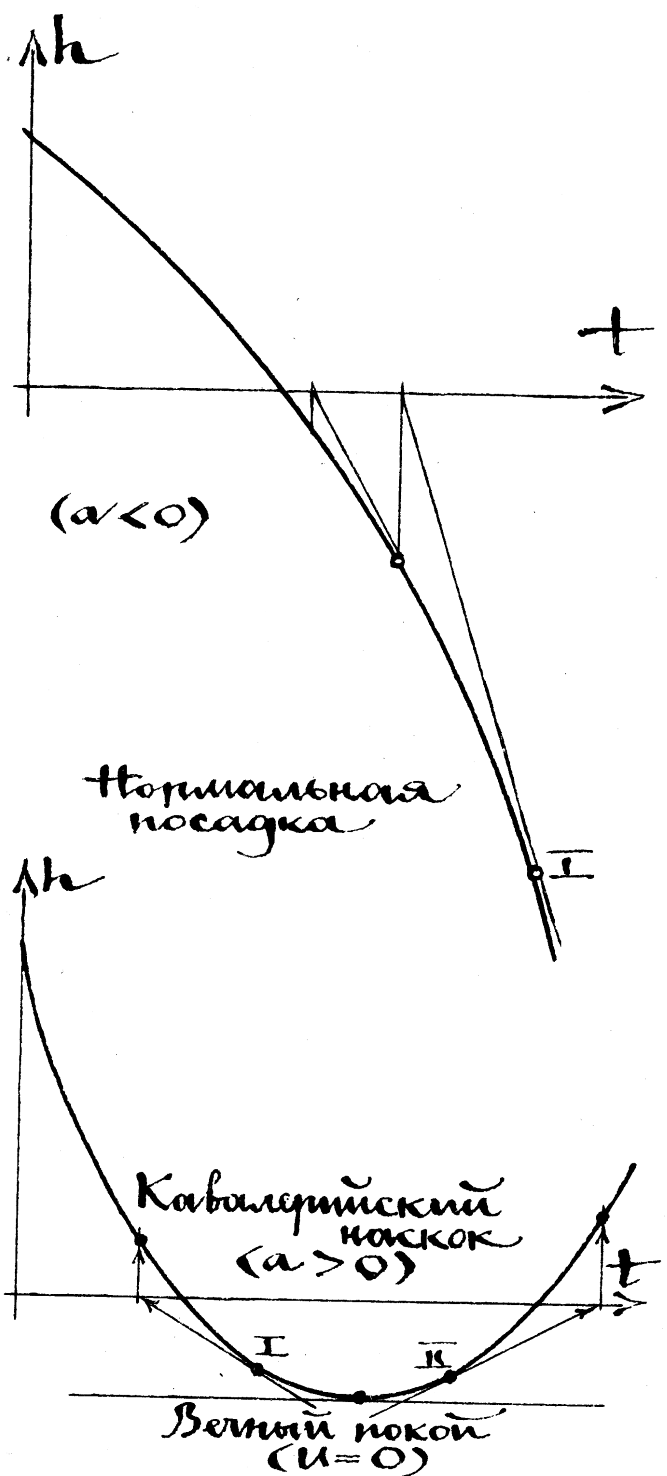 h
t
(a < 0)
Нормальная
посадка
I
h
Кавалерийский
наскок
(a > 0)
t
I
II
Вечный покой
(U = 0)